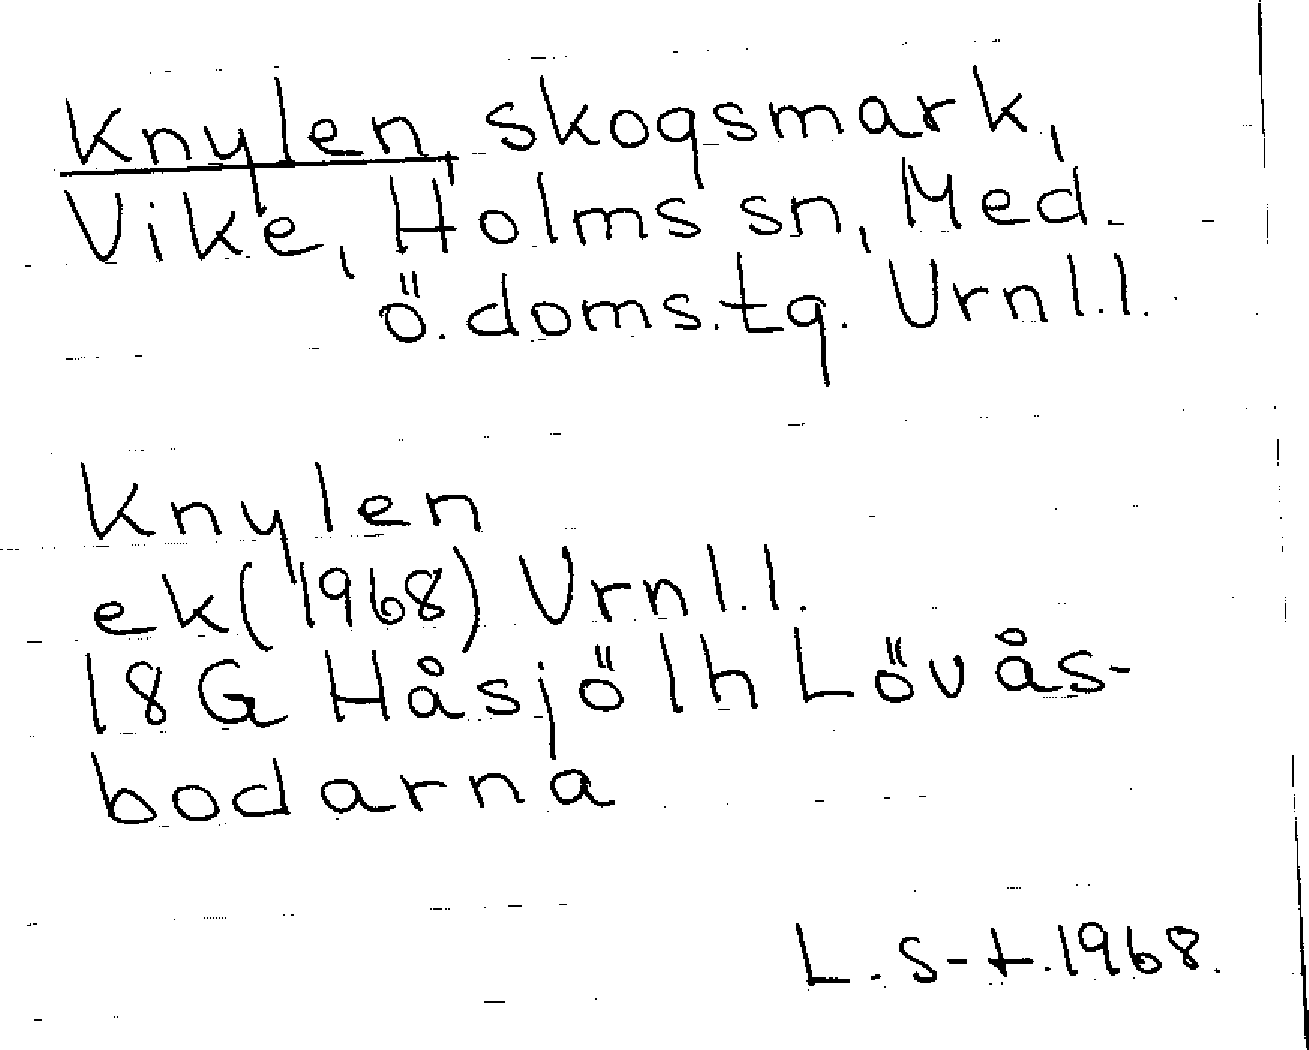 Knylen, skogsmark,
Vike, Holms sn, Med.
ö. doms.tg. Vrnl.l.
Knylen
ek(1968) Vrnl.l.
18G Håsjö 1h Lövås-
bodarna
L. S-t. 1968.